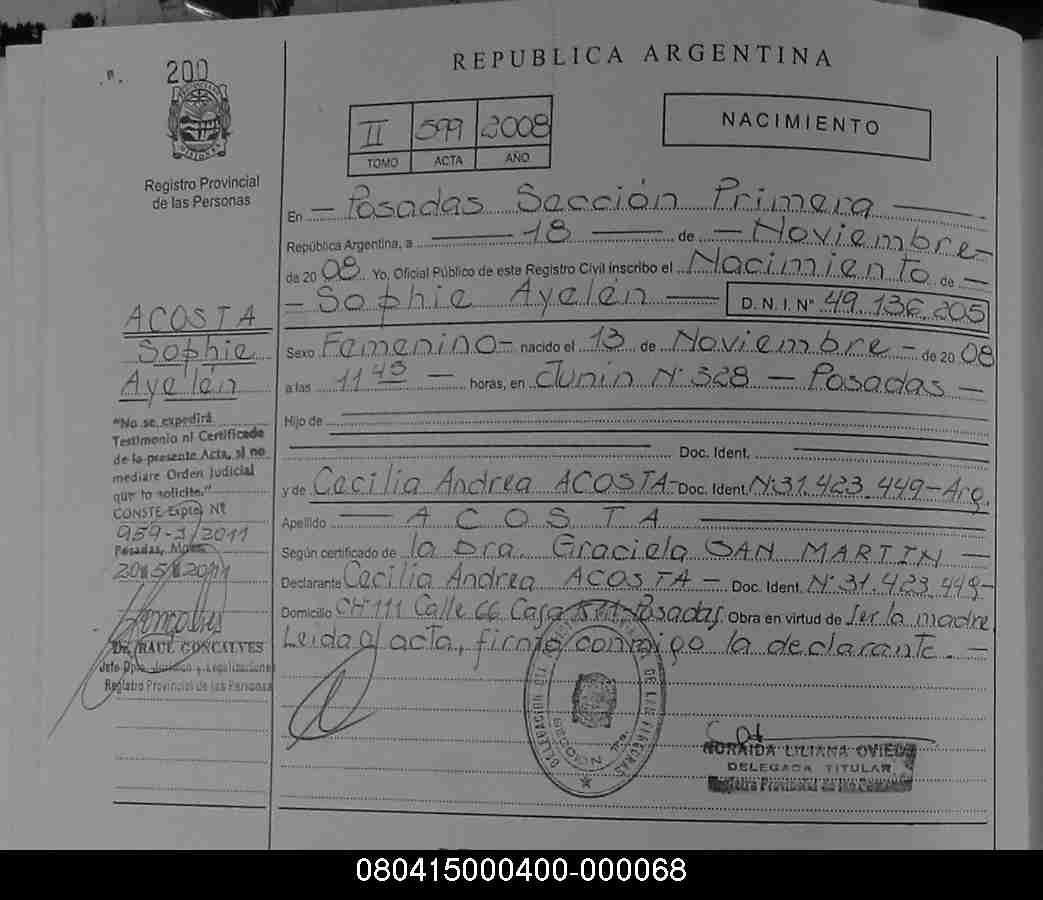 200
Registro Provincial
de las Personas
ACOSTA
Sophie
Ayelén
"No se expedirá
Testimonio ni Certificado
de la presente Acta, si no
mediare Orden Judicial
que lo solicite."
CONSTE Expte. Nº
959-J/2011
Posadas, Mnes.
Dr. RAUL GONCALVES
Jefe Dpto. Jurídico y Legalizaciones
Registro Provincial de las Personas
REPUBLICA ARGENTINA
II 599 2008
TOMO ACTA AÑO
NACIMIENTO
En — Posadas Sección Primera —
República Argentina, a — 18 — de — Noviembre —
de 2008. Yo, Oficial Público de este Registro Civil inscribo el Nacimiento de —
— Sophie Ayelén — D.N.I. Nº 49.136.205
Sexo Femenino — nacido el 13 de Noviembre — de 2008
a las 11 45 — horas, en Junin Nº 328 — Posadas —
Hijo de
Doc. Ident.
y de Cecilia Andrea ACOSTA — Doc. Ident. Nº 31.423.449 — Arg.
Apellido — ACOSTA
Según certificado de la Dra. Graciela SAN MARTIN —
Declarante Cecilia Andrea ACOSTA — Doc. Ident. Nº 31.423.449 —
Domicilio CH 111 Calle 66 Casa Posadas. Obra en virtud de ser la madre
Leida el acta, firma conmigo la declarante. —
DELEGACION DEL DE LAS PERSONAS
SECCION 1ra.
NORAIDA LILIANA OVIEDO
DELEGADA TITULAR
Registro Provincial de las Personas
080415000400-000068